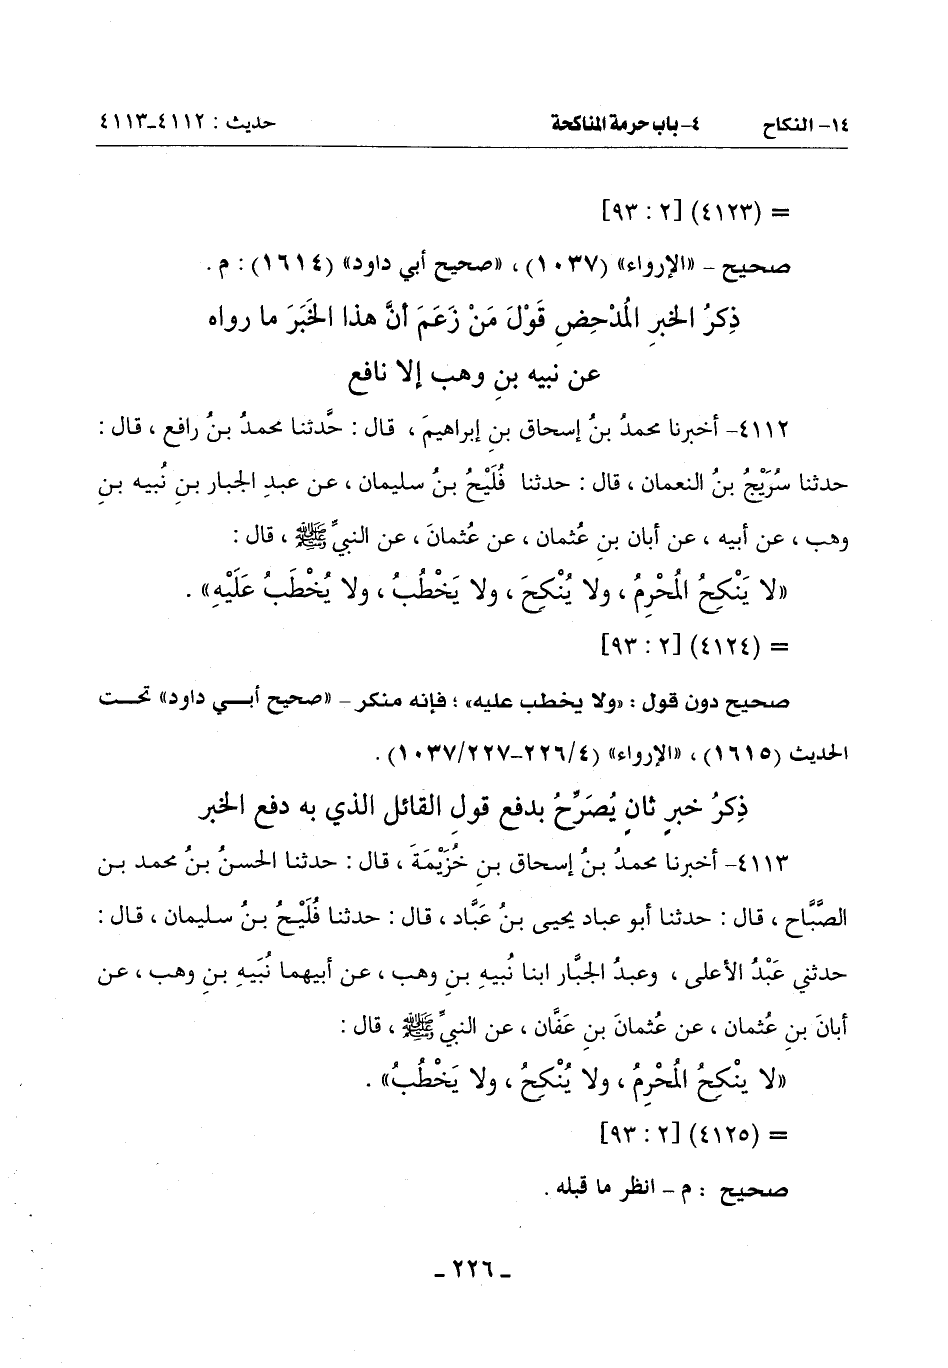 ١٤- النكاح ٤- باب حرمة المناكحة حديث : ٤١١٢-٤١١٣
= (٤١٢٣) [٢ : ٩٣]
صحيح - «الإرواء» (١٠٣٧) ، «صحيح أبي داود» (١٦١٤) : م .
ذِكرُ الخبرِ المُدْحِضِ قَوْلَ مَنْ زَعَمَ أنَّ هذا الخَبَرَ ما رواه
عن نبيه بنِ وهب إلا نافع
٤١١٢- أخبرنا محمدُ بنُ إسحاق بنِ إبراهيمَ ، قال : حَّدثنا محمدُ بنُ رافع ، قال :
حدثنا سُرَيْجُ بنُ النعمان ، قال : حدثنا فُلَيْحُ بنُ سليمان ، عن عبدِ الجبار بنِ نُبيه بنِ
وهب ، عن أبيه ، عن أبان بنِ عُثمان ، عن عُثمانَ ، عن النبيِّ ﷺ ، قال :
«لا يَنْكِحُ المُحْرِمُ ، ولا يُنْكِحَ ، ولا يَخْطُبُ ، ولا يُخْطَبُ عَلَيْهِ» .
= (٤١٢٤) [٢ : ٩٣]
صحيح دون قول : «ولا يخطب عليه» ؛ فإنه منكر - «صحيح أبي داود» تحت
الحديث (١٦١٥) ، «الإرواء» (٤/٢٢٦-٢٢٧/١٠٣٧) .
ذِكرُ خبرٍ ثانٍ يُصَرِّحُ بدفع قولِ القائل الذي به دفع الخبر
٤١١٣- أخبرنا محمدُ بنُ إسحاق بنِ خُزَيْمَةَ ، قال : حدثنا الحسنُ بنُ محمد بن
الصَّبَّاح ، قال : حدثنا أبو عباد يحيى بنُ عَبَّاد ، قال : حدثنا فُلَيْحُ بنُ سليمان ، قال :
حدثني عَبْدُ الأعلى ، وعبدُ الجبَّار ابنا نُبيهِ بنِ وهب ، عن أبيهما نُبَيهِ بنِ وهب ، عن
أبانَ بنِ عُثمان ، عن عُثمانَ بنِ عَفَّان ، عن النبيِّ ﷺ ، قال :
«لا ينْكِحُ المُحْرِمُ ، ولا يُنْكِحُ ، ولا يَخْطُبُ» .
= (٤١٢٥) [٢ : ٩٣]
صحيح : م - انظر ما قبله .
- ٢٢٦ -